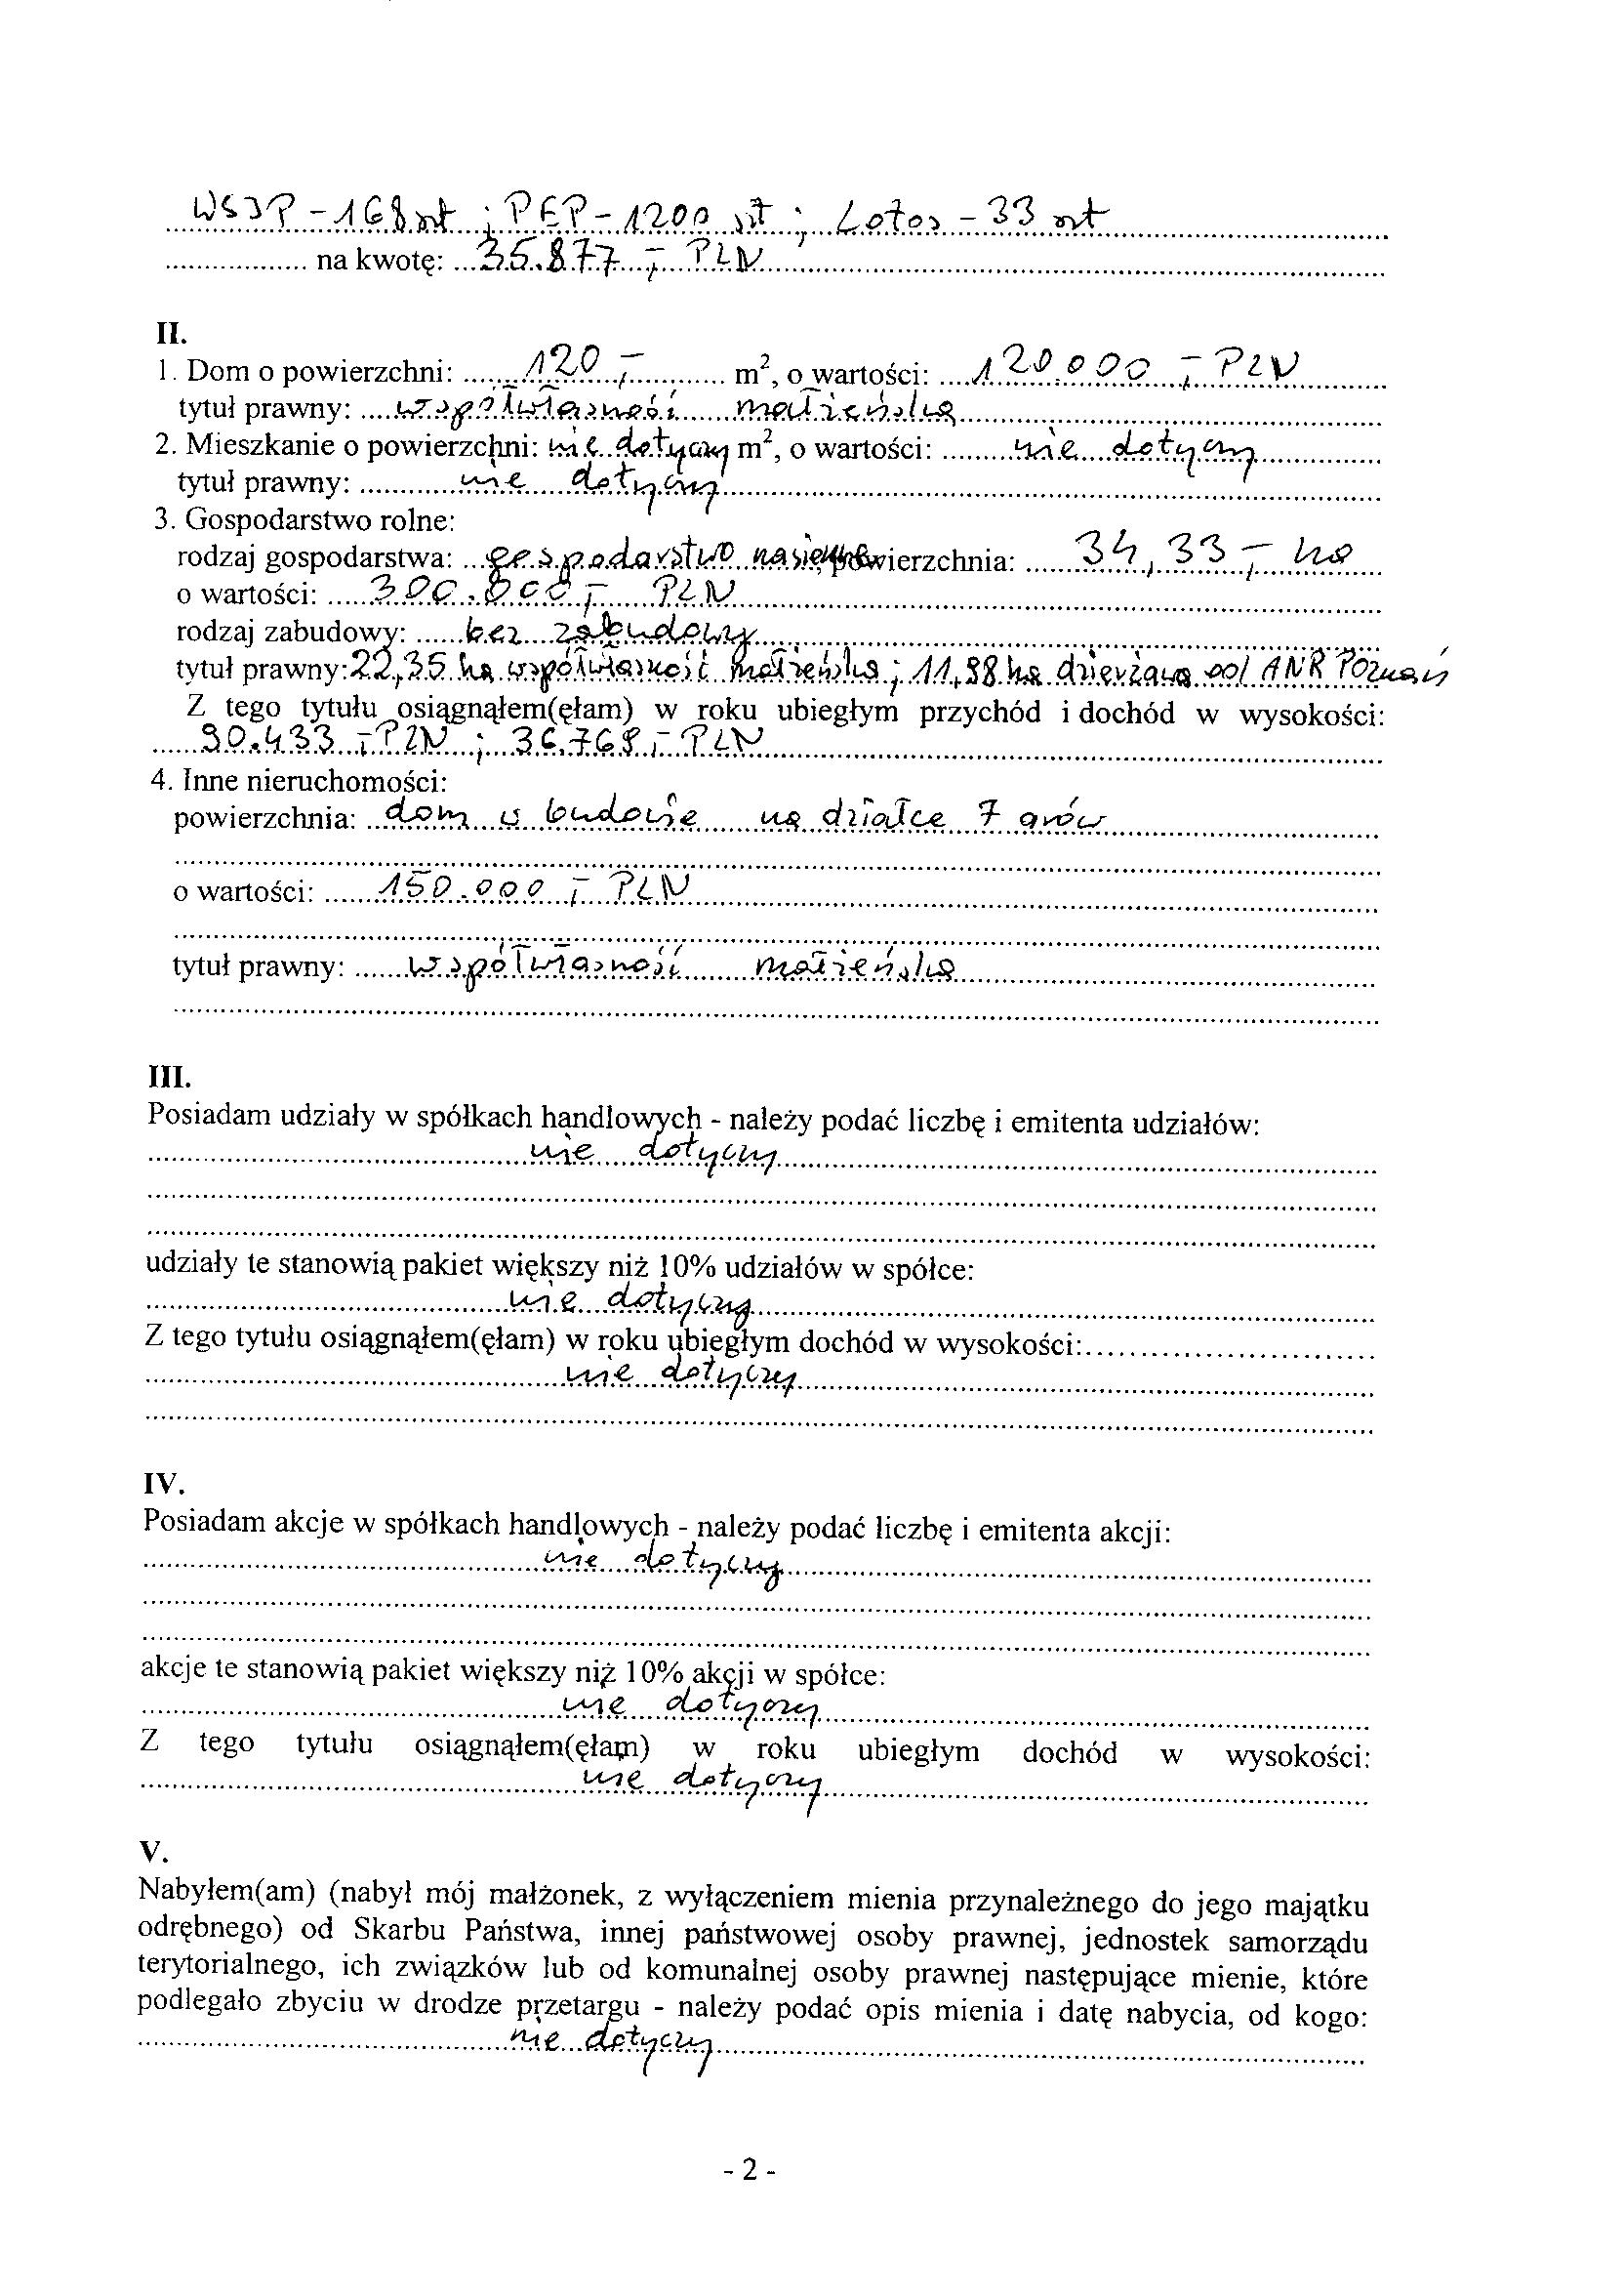 WSiP - 168 szt ; PEP - 1200 szt ; Lotos - 33 szt
na kwotę: 35.877,- PLN
II.
1. Dom o powierzchni: 120,- m², o wartości: 120.000,- PLN
tytuł prawny: współwłasność małżeńska
2. Mieszkanie o powierzchni: nie dotyczy m², o wartości: nie dotyczy
tytuł prawny: nie dotyczy
3. Gospodarstwo rolne:
rodzaj gospodarstwa: gospodarstwo nasienne, powierzchnia: 34,33,- ha
o wartości: 300.000,- PLN
rodzaj zabudowy: bez zabudowy
tytuł prawny: 22,35 ha współwłasność małżeńska ; 11,98 ha dzierżawa od ANR Poznań
Z tego tytułu osiągnąłem(ęłam) w roku ubiegłym przychód i dochód w wysokości:
90.433,- PLN ; 36.769,- PLN
4. Inne nieruchomości:
powierzchnia: dom w budowie na działce 7 arów
o wartości: 150.000,- PLN
tytuł prawny: współwłasność małżeńska
III.
Posiadam udziały w spółkach handlowych - należy podać liczbę i emitenta udziałów:
nie dotyczy
udziały te stanowią pakiet większy niż 10% udziałów w spółce:
nie dotyczy
Z tego tytułu osiągnąłem(ęłam) w roku ubiegłym dochód w wysokości:
nie dotyczy
IV.
Posiadam akcje w spółkach handlowych - należy podać liczbę i emitenta akcji:
nie dotyczy
akcje te stanowią pakiet większy niż 10% akcji w spółce:
nie dotyczy
Z tego tytułu osiągnąłem(ęłam) w roku ubiegłym dochód w wysokości:
nie dotyczy
V.
Nabyłem(am) (nabył mój małżonek, z wyłączeniem mienia przynależnego do jego majątku
odrębnego) od Skarbu Państwa, innej państwowej osoby prawnej, jednostek samorządu
terytorialnego, ich związków lub od komunalnej osoby prawnej następujące mienie, które
podlegało zbyciu w drodze przetargu - należy podać opis mienia i datę nabycia, od kogo:
nie dotyczy
- 2 -